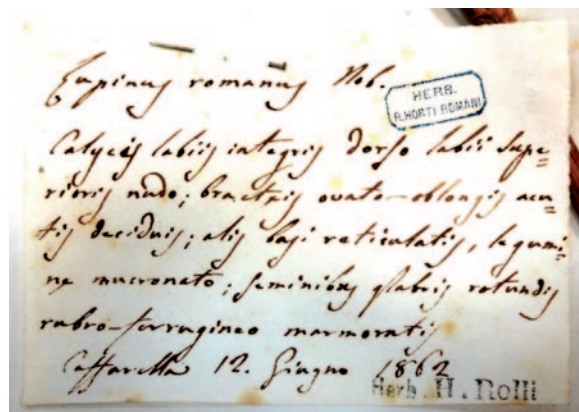 Lupinus romanus Nob.
HERB.
R. HORTI ROMANI
Calyces labiis integris dorso labii supe=
rioris nudo; bracteis ovato-oblongis acu=
tis deciduis; alis basi reticulatis, legumi=
ne mucronato; seminibus glabris rotundis
rubro-ferrugineo marmoratis
Caffarella 12. Giugno 1862
Herb. H. Rolli